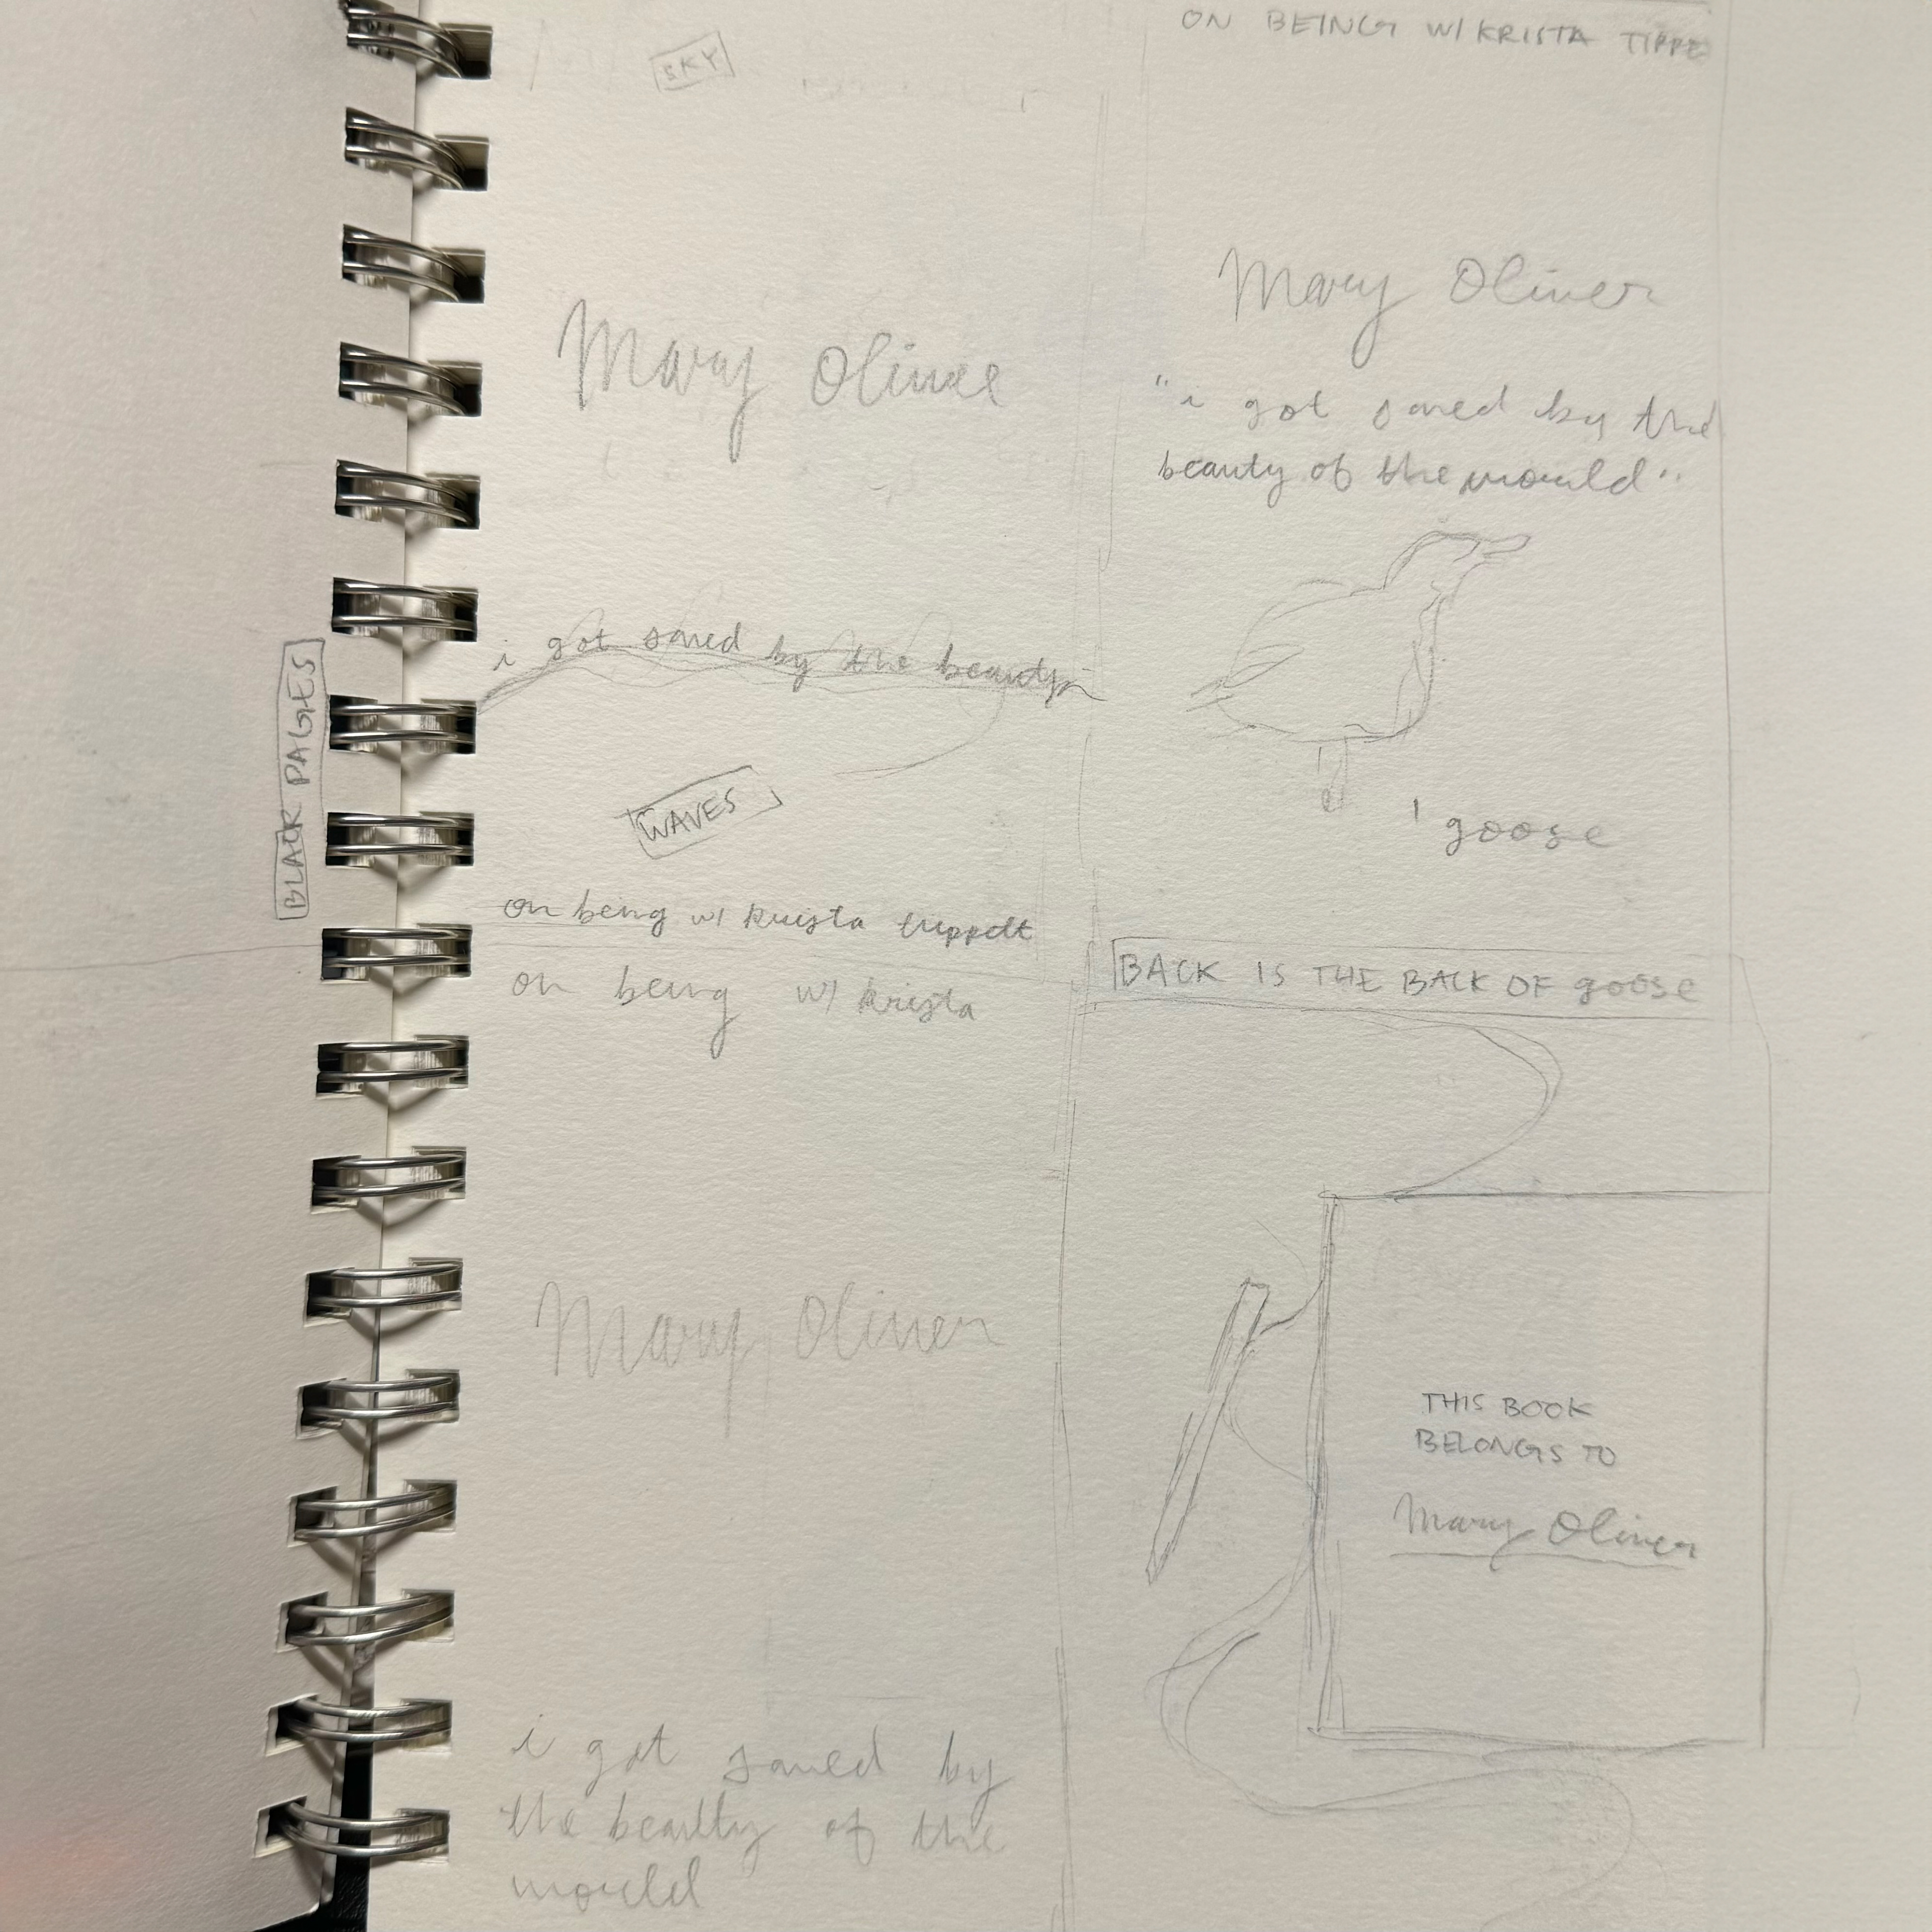 SKY
Mary Oliver
i got saved by the beauty
WAVES
on being w/ krista tippett
on being w/ krista
Mary Oliver
i got saved by
the beauty of the
world
BLACK PAGES
ON BEING W/ KRISTA TIPPE
Mary Oliver
"i got saved by the
beauty of the world"
goose
BACK IS THE BACK OF goose
THIS BOOK
BELONGS TO
Mary Oliver